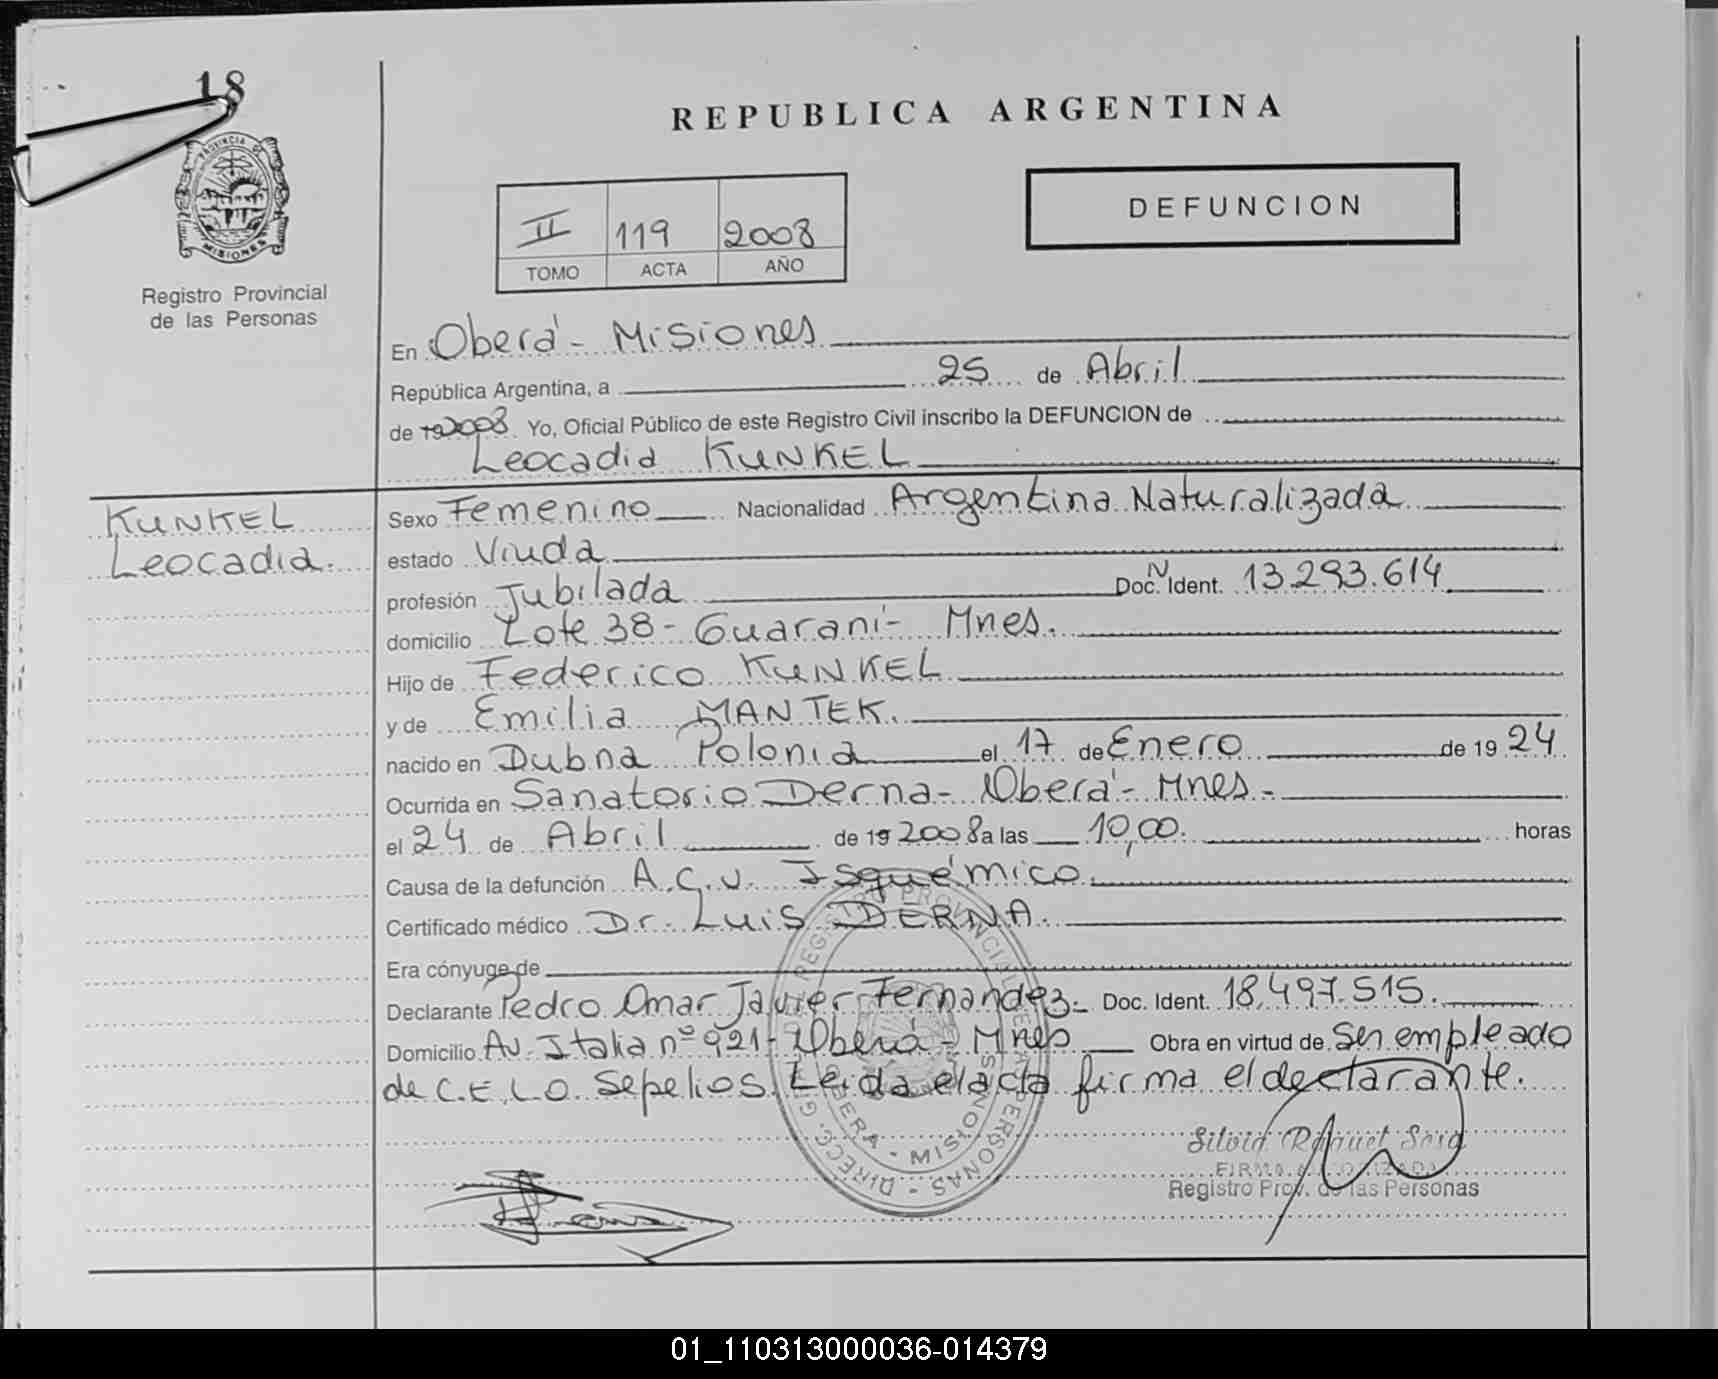 18
PROVINCIA DE
MISIONES
Registro Provincial
de las Personas
REPUBLICA ARGENTINA
II 119 2008
TOMO ACTA AÑO
DEFUNCION
En Oberá - Misiones
República Argentina, a 25 de Abril
de 192008 Yo, Oficial Público de este Registro Civil inscribo la DEFUNCION de
Leocadia KUNKEL
KUNKEL
Leocadia.
Sexo Femenino Nacionalidad Argentina Naturalizada
estado Viuda
profesión Jubilada Doc. N Ident. 13.293.614
domicilio Lote 38 - Guaraní - Mnes.
Hijo de Federico KUNKEL
y de Emilia MANTEK.
nacido en Dubna Polonia el 17 de Enero de 19 24
Ocurrida en Sanatorio Derna - Oberá - Mnes -
el 24 de Abril de 19 2008 a las 10,00. horas
Causa de la defunción A.C.V. Isquémico.
Certificado médico Dr. Luis DERNA.
Era cónyuge de
Declarante Pedro Omar Javier Fernandez. Doc. Ident. 18.497.515.
Domicilio Av. Italia nº 921 - Oberá - Mnes Obra en virtud de Ser empleado
de C.E.L.O. Sepelios. Leida el acta firma el declarante.
Silvia Raquel
FIRMA AUTORIZADA
Registro Prov. de las Personas
01_110313000036-014379